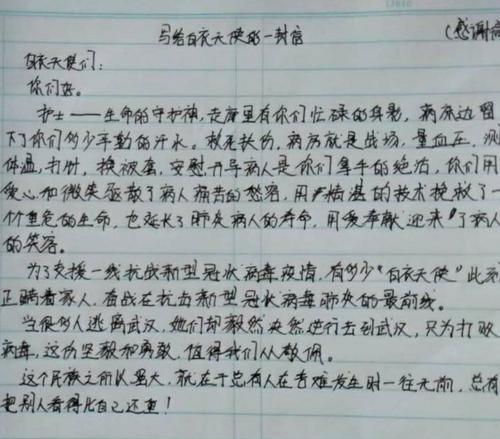 写给白衣天使的一封信 (感谢
白衣天使们:
你们好。
护士——生命的守护神,走廊里有你们忙碌的身影,病床边留
下了你们多少辛勤的汗水。救死扶伤,病房就是战场,量血压,测
体温,打针,换被套,安慰开导病人是你们拿手的绝活,你们用
爱心和微笑驱散了病人痛苦的愁容,用精湛的技术挽救了一
个个垂危的生命,也延长了肺炎病人的寿命,用爱奉献迎来了病人
的笑容。
为了支援一线抗战新型冠状病毒疫情,有多少“白衣天使”此刻
正瞒着家人,奋战在抗击新型冠状病毒肺炎的最前线。
当很多人逃离武汉,她们却毅然决然逆行去到武汉,只为打败
病毒,这份坚毅和勇敢,值得我们从敬佩。
这个民族之所以强大,就在于总有人在苦难发生时一往无前,总有
把别人看得比自己还重!